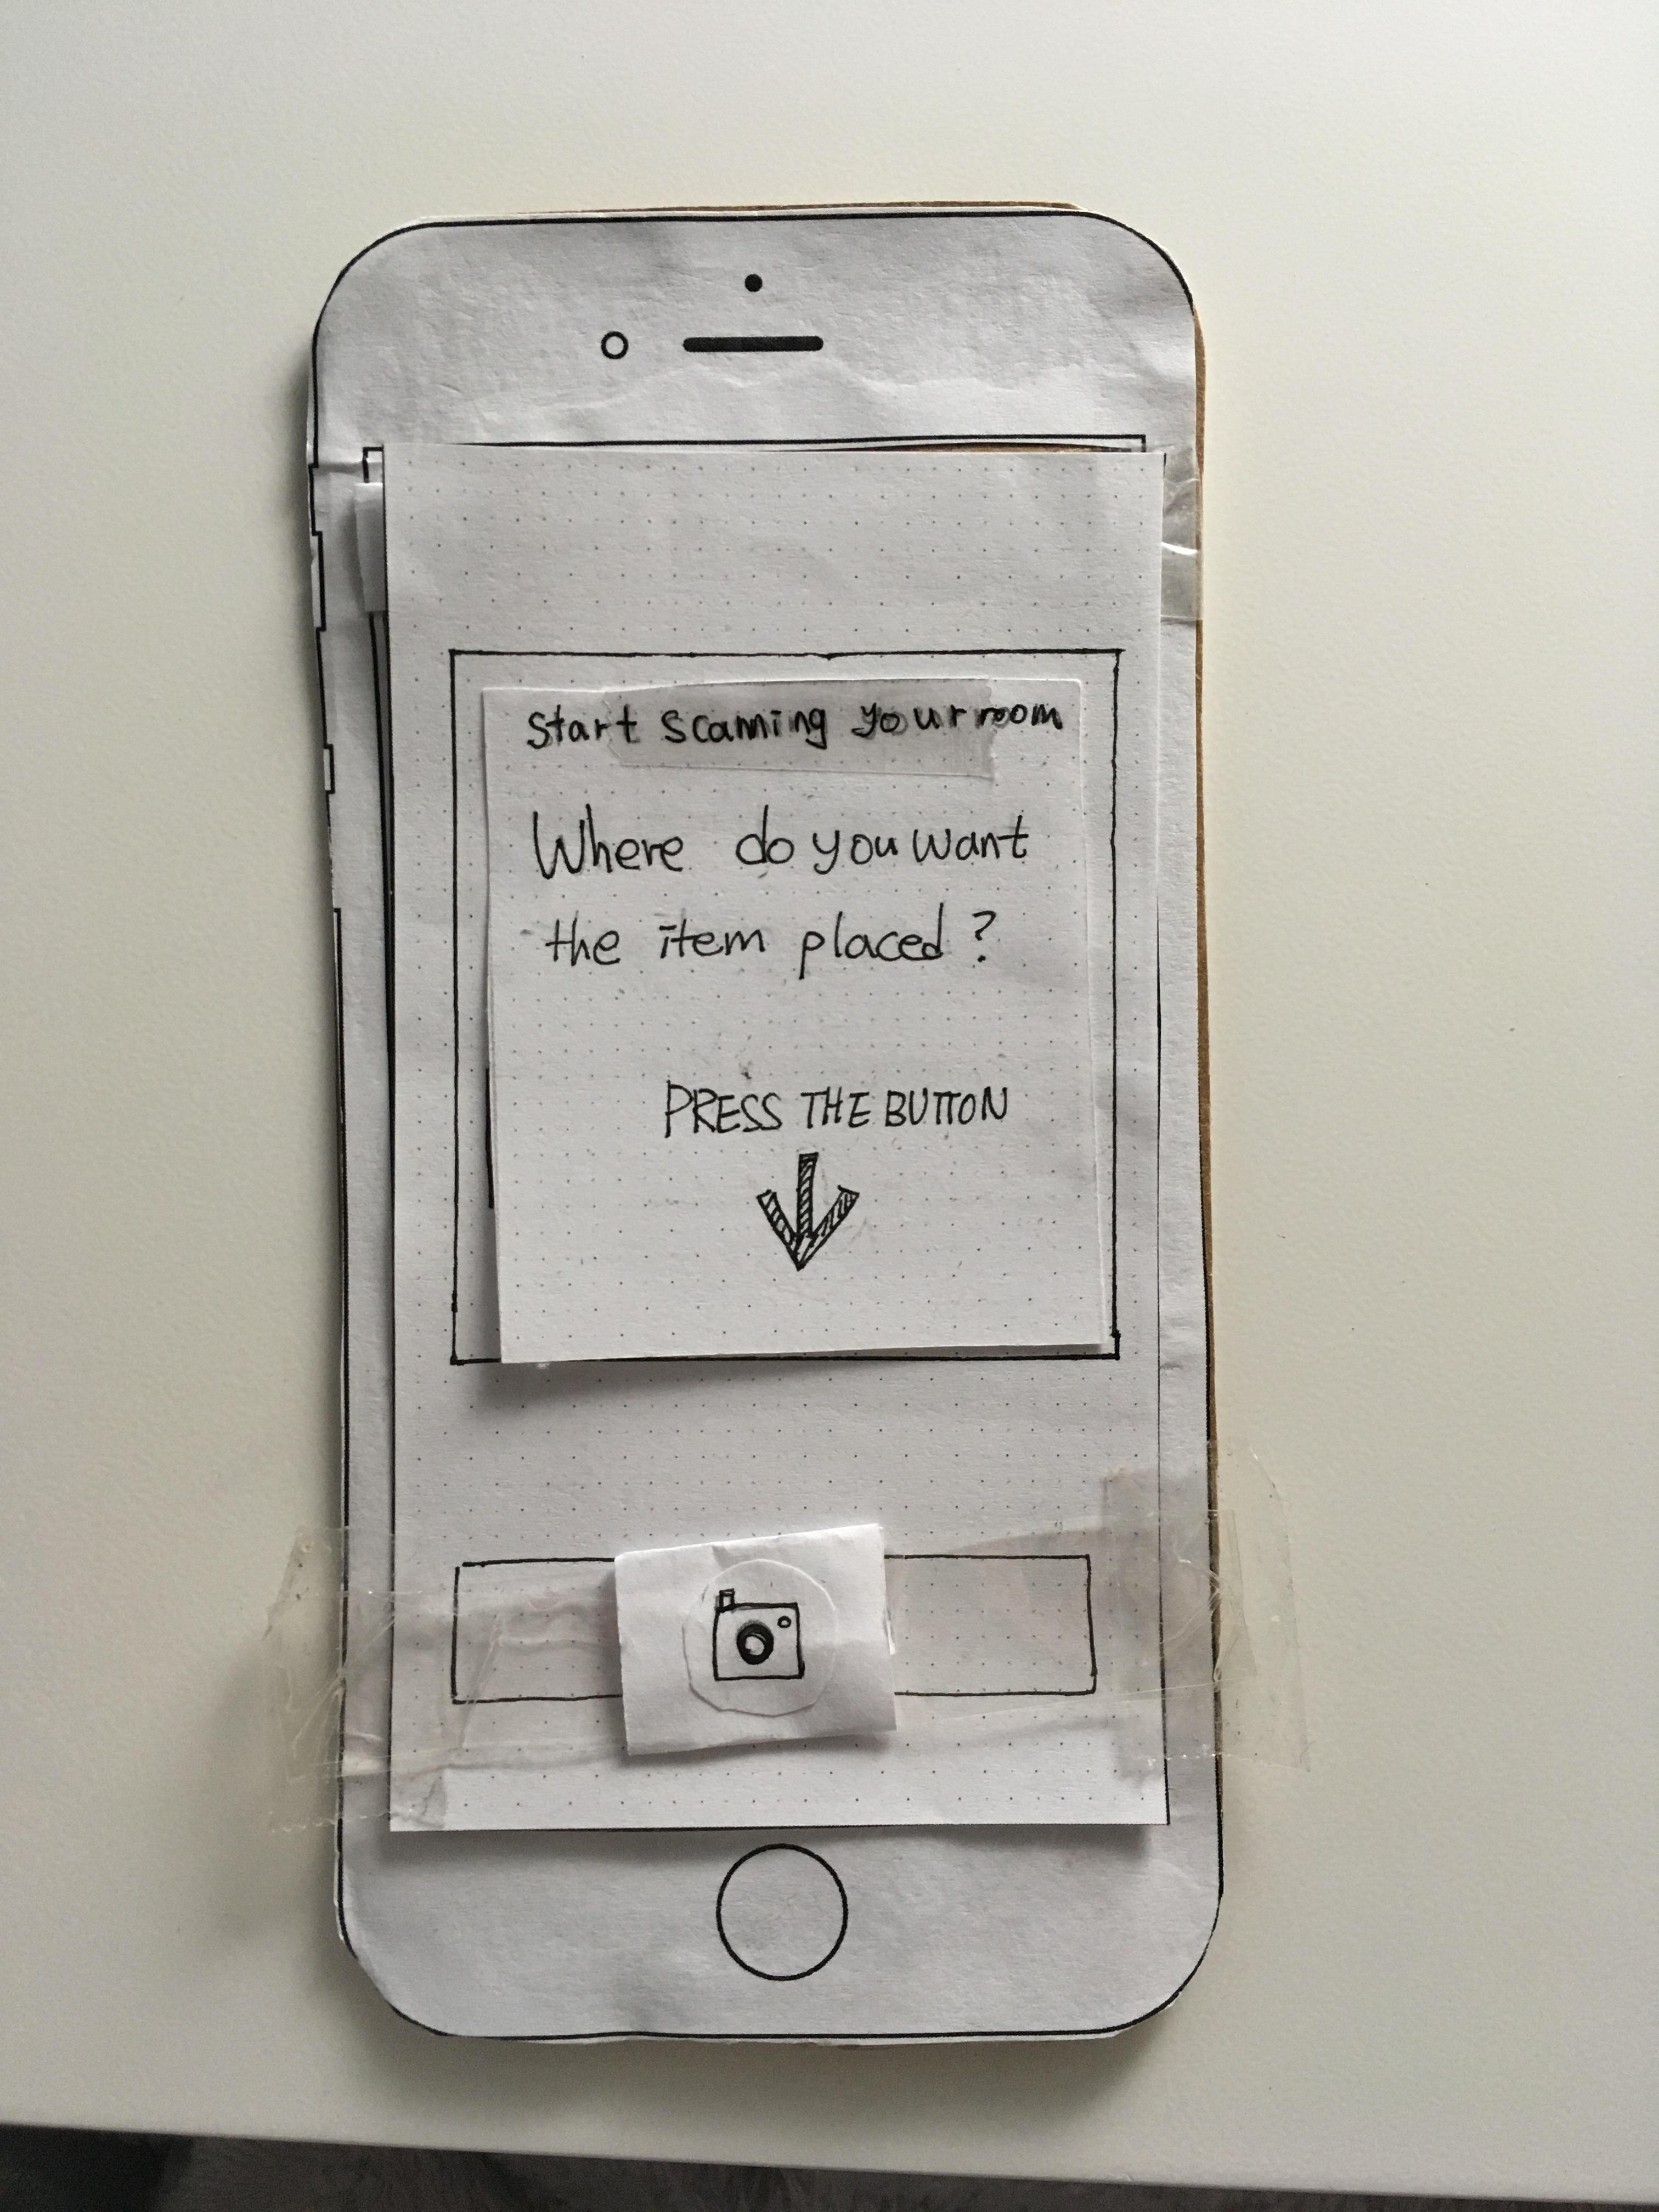 Start scanning your room
Where do you want
the item placed?
PRESS THE BUTTON